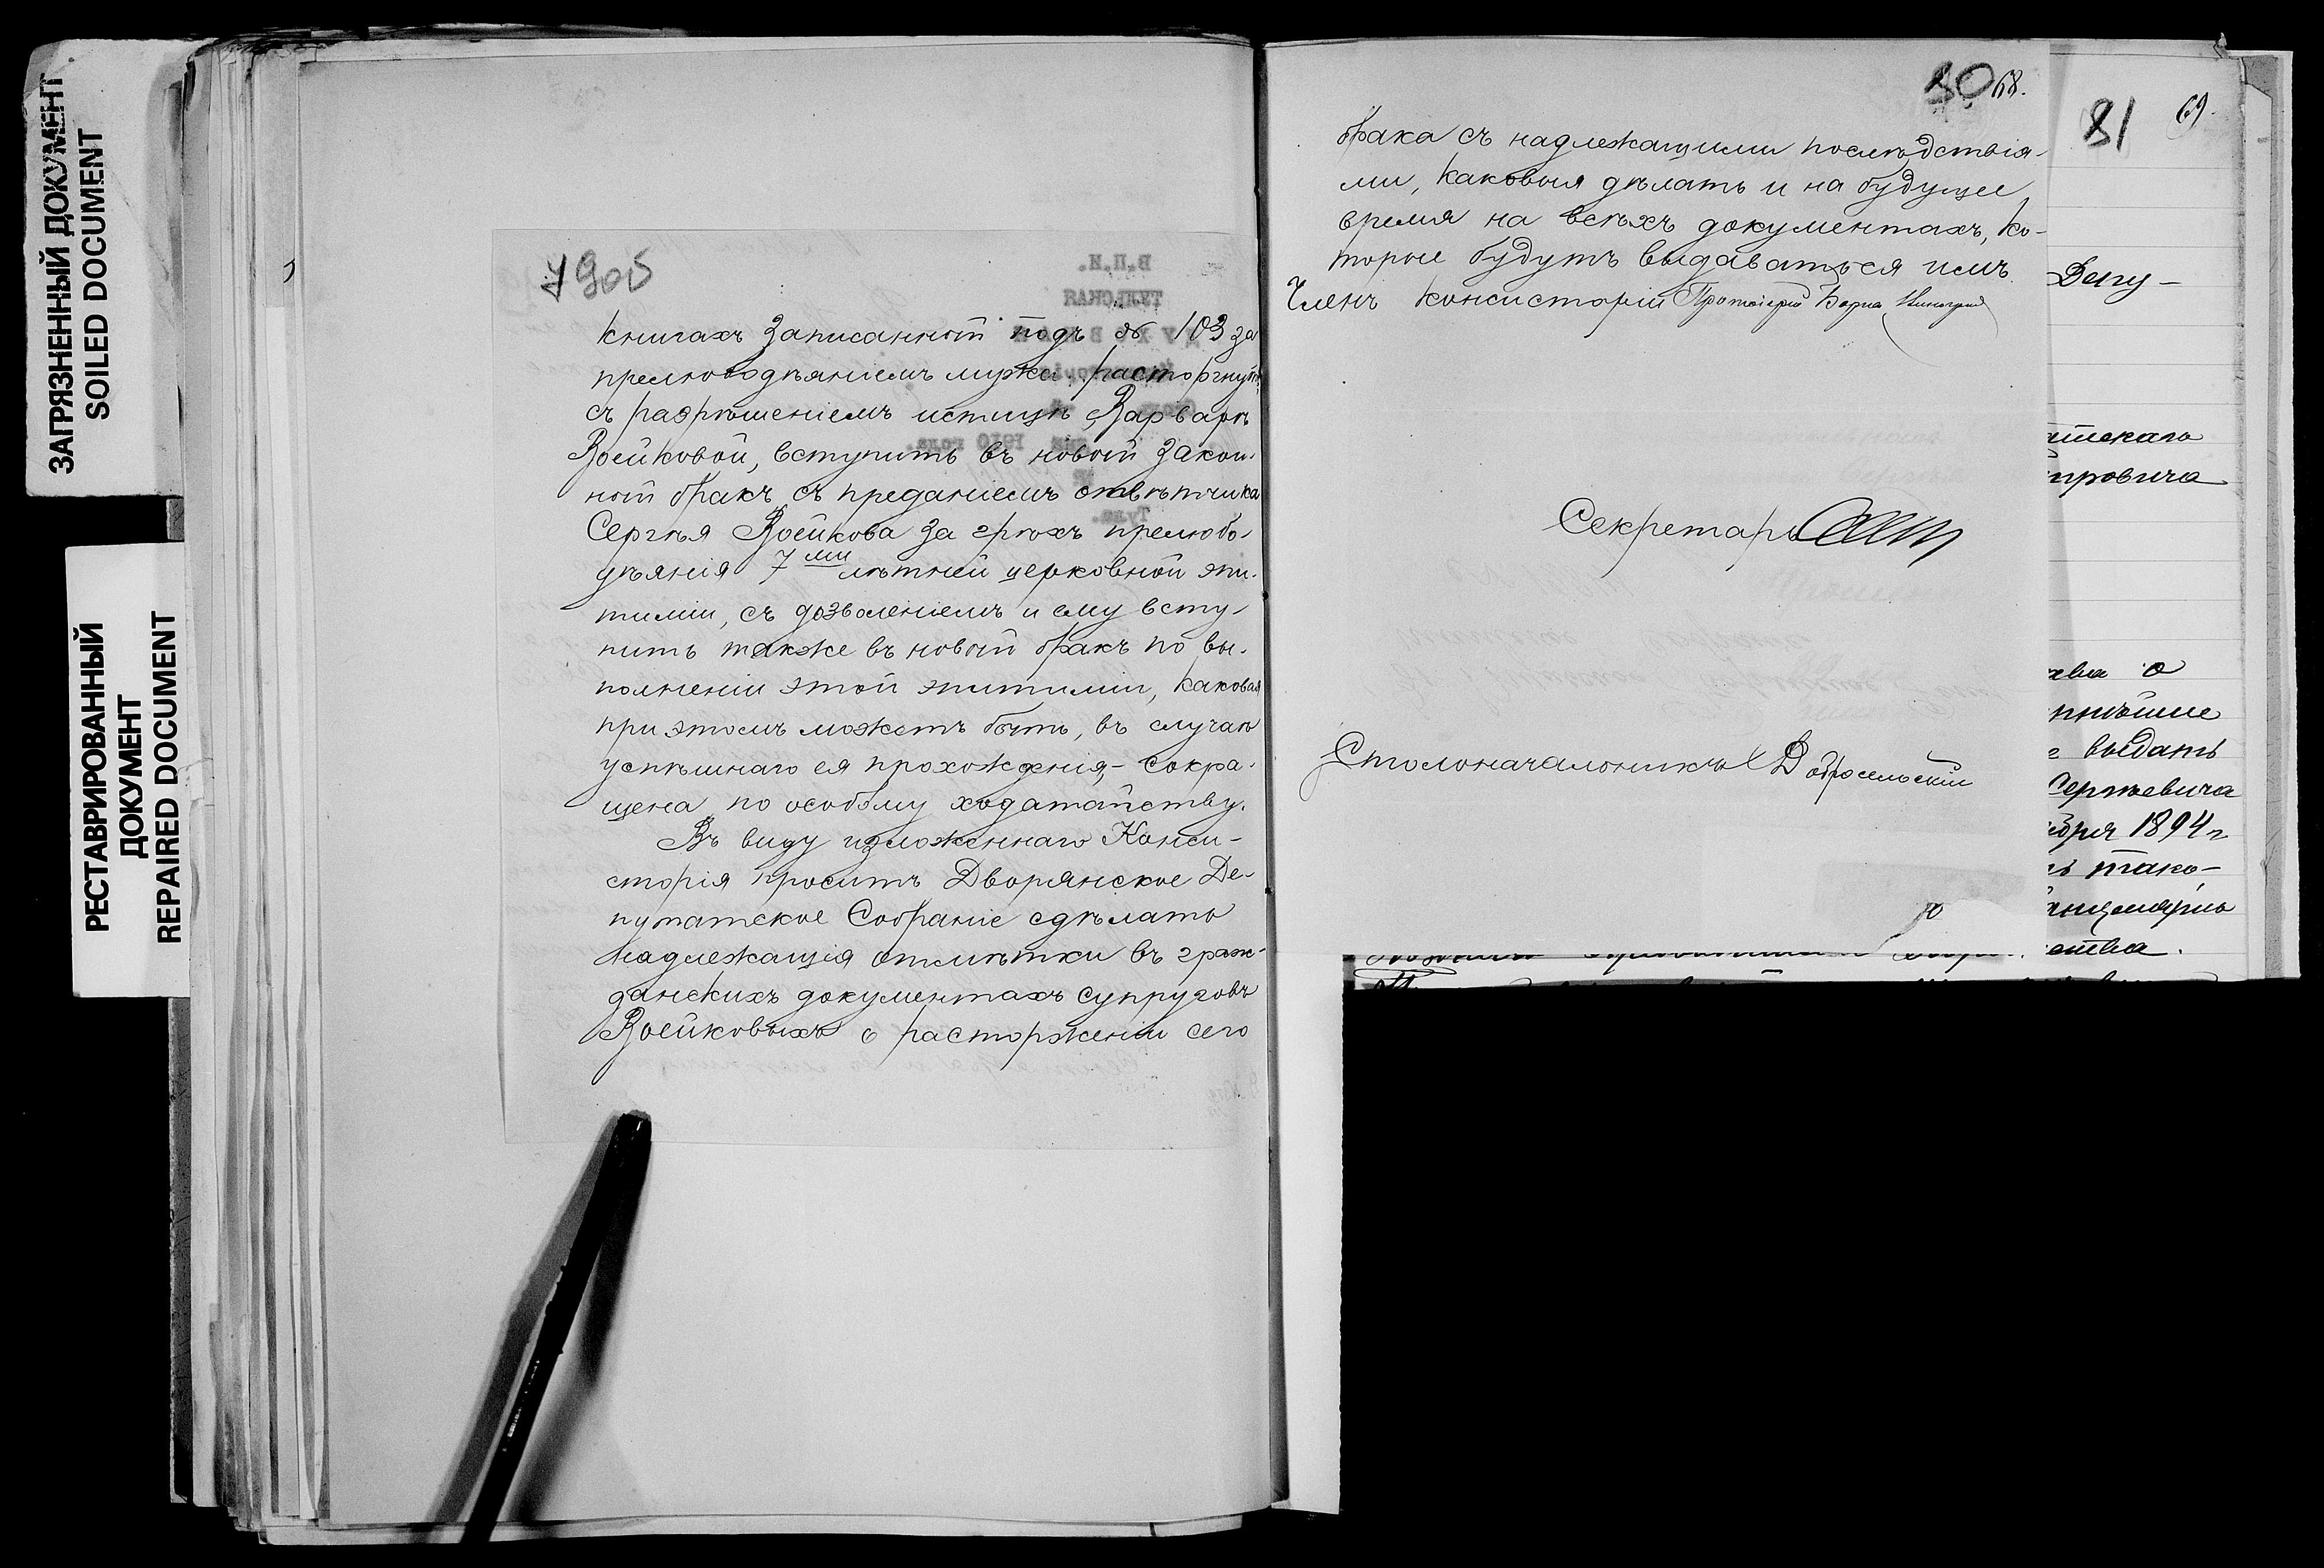 ЗАГРЯЗНЕННЫЙ ДОКУМЕНТ
SOILED DOCUMENT
РЕСТАВРИРОВАННЫЙ
ДОКУМЕНТ
REPAIRED DOCUMENT
книгахъ записанный подъ № 103 за
прелюбодѣяніемъ мужа, расторгнутъ,
съ разрѣшеніемъ истицѣ, Варварѣ
Воейковой, вступить въ новый закон-
ный бракъ, съ преданіемъ отвѣтчика
Сергѣя Воейкова за грѣхъ прелюбо-
дѣянія 7ми лѣтней церковной эпи-
тиміи, съ дозволеніемъ и ему всту-
пить также въ новый бракъ по вы-
полненіи этой эпитиміи, каковая
при этомъ можетъ быть, въ случаѣ
успѣшнаго ея прохожденія,- сокра-
щена по особому ходатайству.
Въ виду изложеннаго Конси-
сторія проситъ Дворянское Де-
путатское Собраніе сдѣлать
надлежащія отмѣтки въ граж-
данскихъ документахъ супруговъ
Воейковыхъ о расторженіи сего
80 68.
брака съ надлежащими послѣдствія-
ми, каковыя дѣлать и на будущее
время на всѣхъ документахъ, ко-
торые будутъ выдаваться имъ.
Членъ Консисторіи Протоіерей
Секретарь
Столоначальникъ Добросельскій
81 69.
Депу-
атскаго
тровича
ства о
г выдать
Сергѣевича
ября 1894 г
ь тако-
ства.